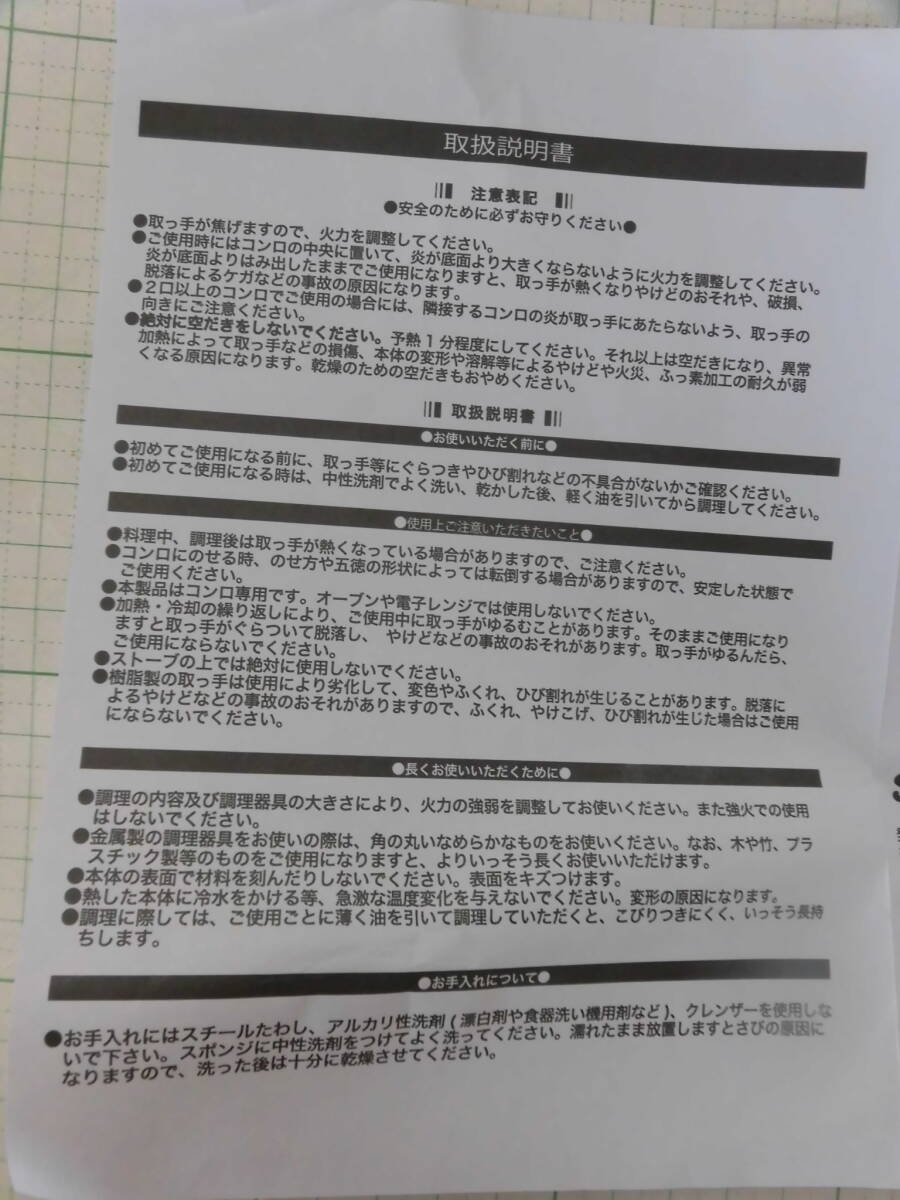 取扱説明書
注意表記
●安全のために必ずお守りください●
●取っ手が焦げますので、火力を調整してください。
●ご使用時にはコンロの中央に置いて、炎が底面より大きくならないように火力を調整してください。
炎が底面よりはみ出したままでご使用になりますと、取っ手が熱くなりやけどのおそれや、破損、
脱落によるケガなどの事故の原因になります。
●2口以上のコンロでご使用の場合には、隣接するコンロの炎が取っ手にあたらないよう、取っ手の
向きにご注意ください。
●絶対に空だきをしないでください。予熱1分程度にしてください。それ以上は空だきになり、異常
加熱によって取っ手などの損傷、本体の変形や溶解等によるやけどや火災、ふっ素加工の耐久が弱
くなる原因になります。乾燥のための空だきもおやめください。
取扱説明書
●お使いいただく前に●
●初めてご使用になる前に、取っ手等にぐらつきやひび割れなどの不具合がないかご確認ください。
●初めてご使用になる時は、中性洗剤でよく洗い、乾かした後、軽く油を引いてから調理してください。
●使用上ご注意いただきたいこと●
●料理中、調理後は取っ手が熱くなっている場合がありますので、ご注意ください。
●コンロにのせる時、のせ方や五徳の形状によっては転倒する場合がありますので、安定した状態で
ご使用ください。
●本製品はコンロ専用です。オーブンや電子レンジでは使用しないでください。
●加熱・冷却の繰り返しにより、ご使用中に取っ手がゆるむことがあります。そのままご使用になり
ますと取っ手がぐらついて脱落し、やけどなどの事故のおそれがあります。取っ手がゆるんだら、
ご使用にならないでください。
●ストーブの上では絶対に使用しないでください。
●樹脂製の取っ手は使用により劣化して、変色やふくれ、ひび割れが生じることがあります。脱落に
よるやけどなどの事故のおそれがありますので、ふくれ、やけこげ、ひび割れが生じた場合はご使用
にならないでください。
●長くお使いいただくために●
●調理の内容及び調理器具の大きさにより、火力の強弱を調整してお使いください。また強火での使用
はしないでください。
●金属製の調理器具をお使いの際は、角の丸いなめらかなものをお使いください。なお、木や竹、プラ
スチック製等のものをご使用になりますと、よりいっそう長くお使いいただけます。
●本体の表面で材料を刻んだりしないでください。表面をキズつけます。
●熱した本体に冷水をかける等、急激な温度変化を与えないでください。変形の原因になります。
●調理に際しては、ご使用ごとに薄く油を引いて調理していただくと、こびりつきにくく、いっそう長持
ちします。
●お手入れについて●
●お手入れにはスチールたわし、アルカリ性洗剤(漂白剤や食器洗い機用剤など)、クレンザーを使用しな
いで下さい。スポンジに中性洗剤をつけてよく洗ってください。濡れたまま放置しますとさびの原因に
なりますので、洗った後は十分に乾燥させてください。